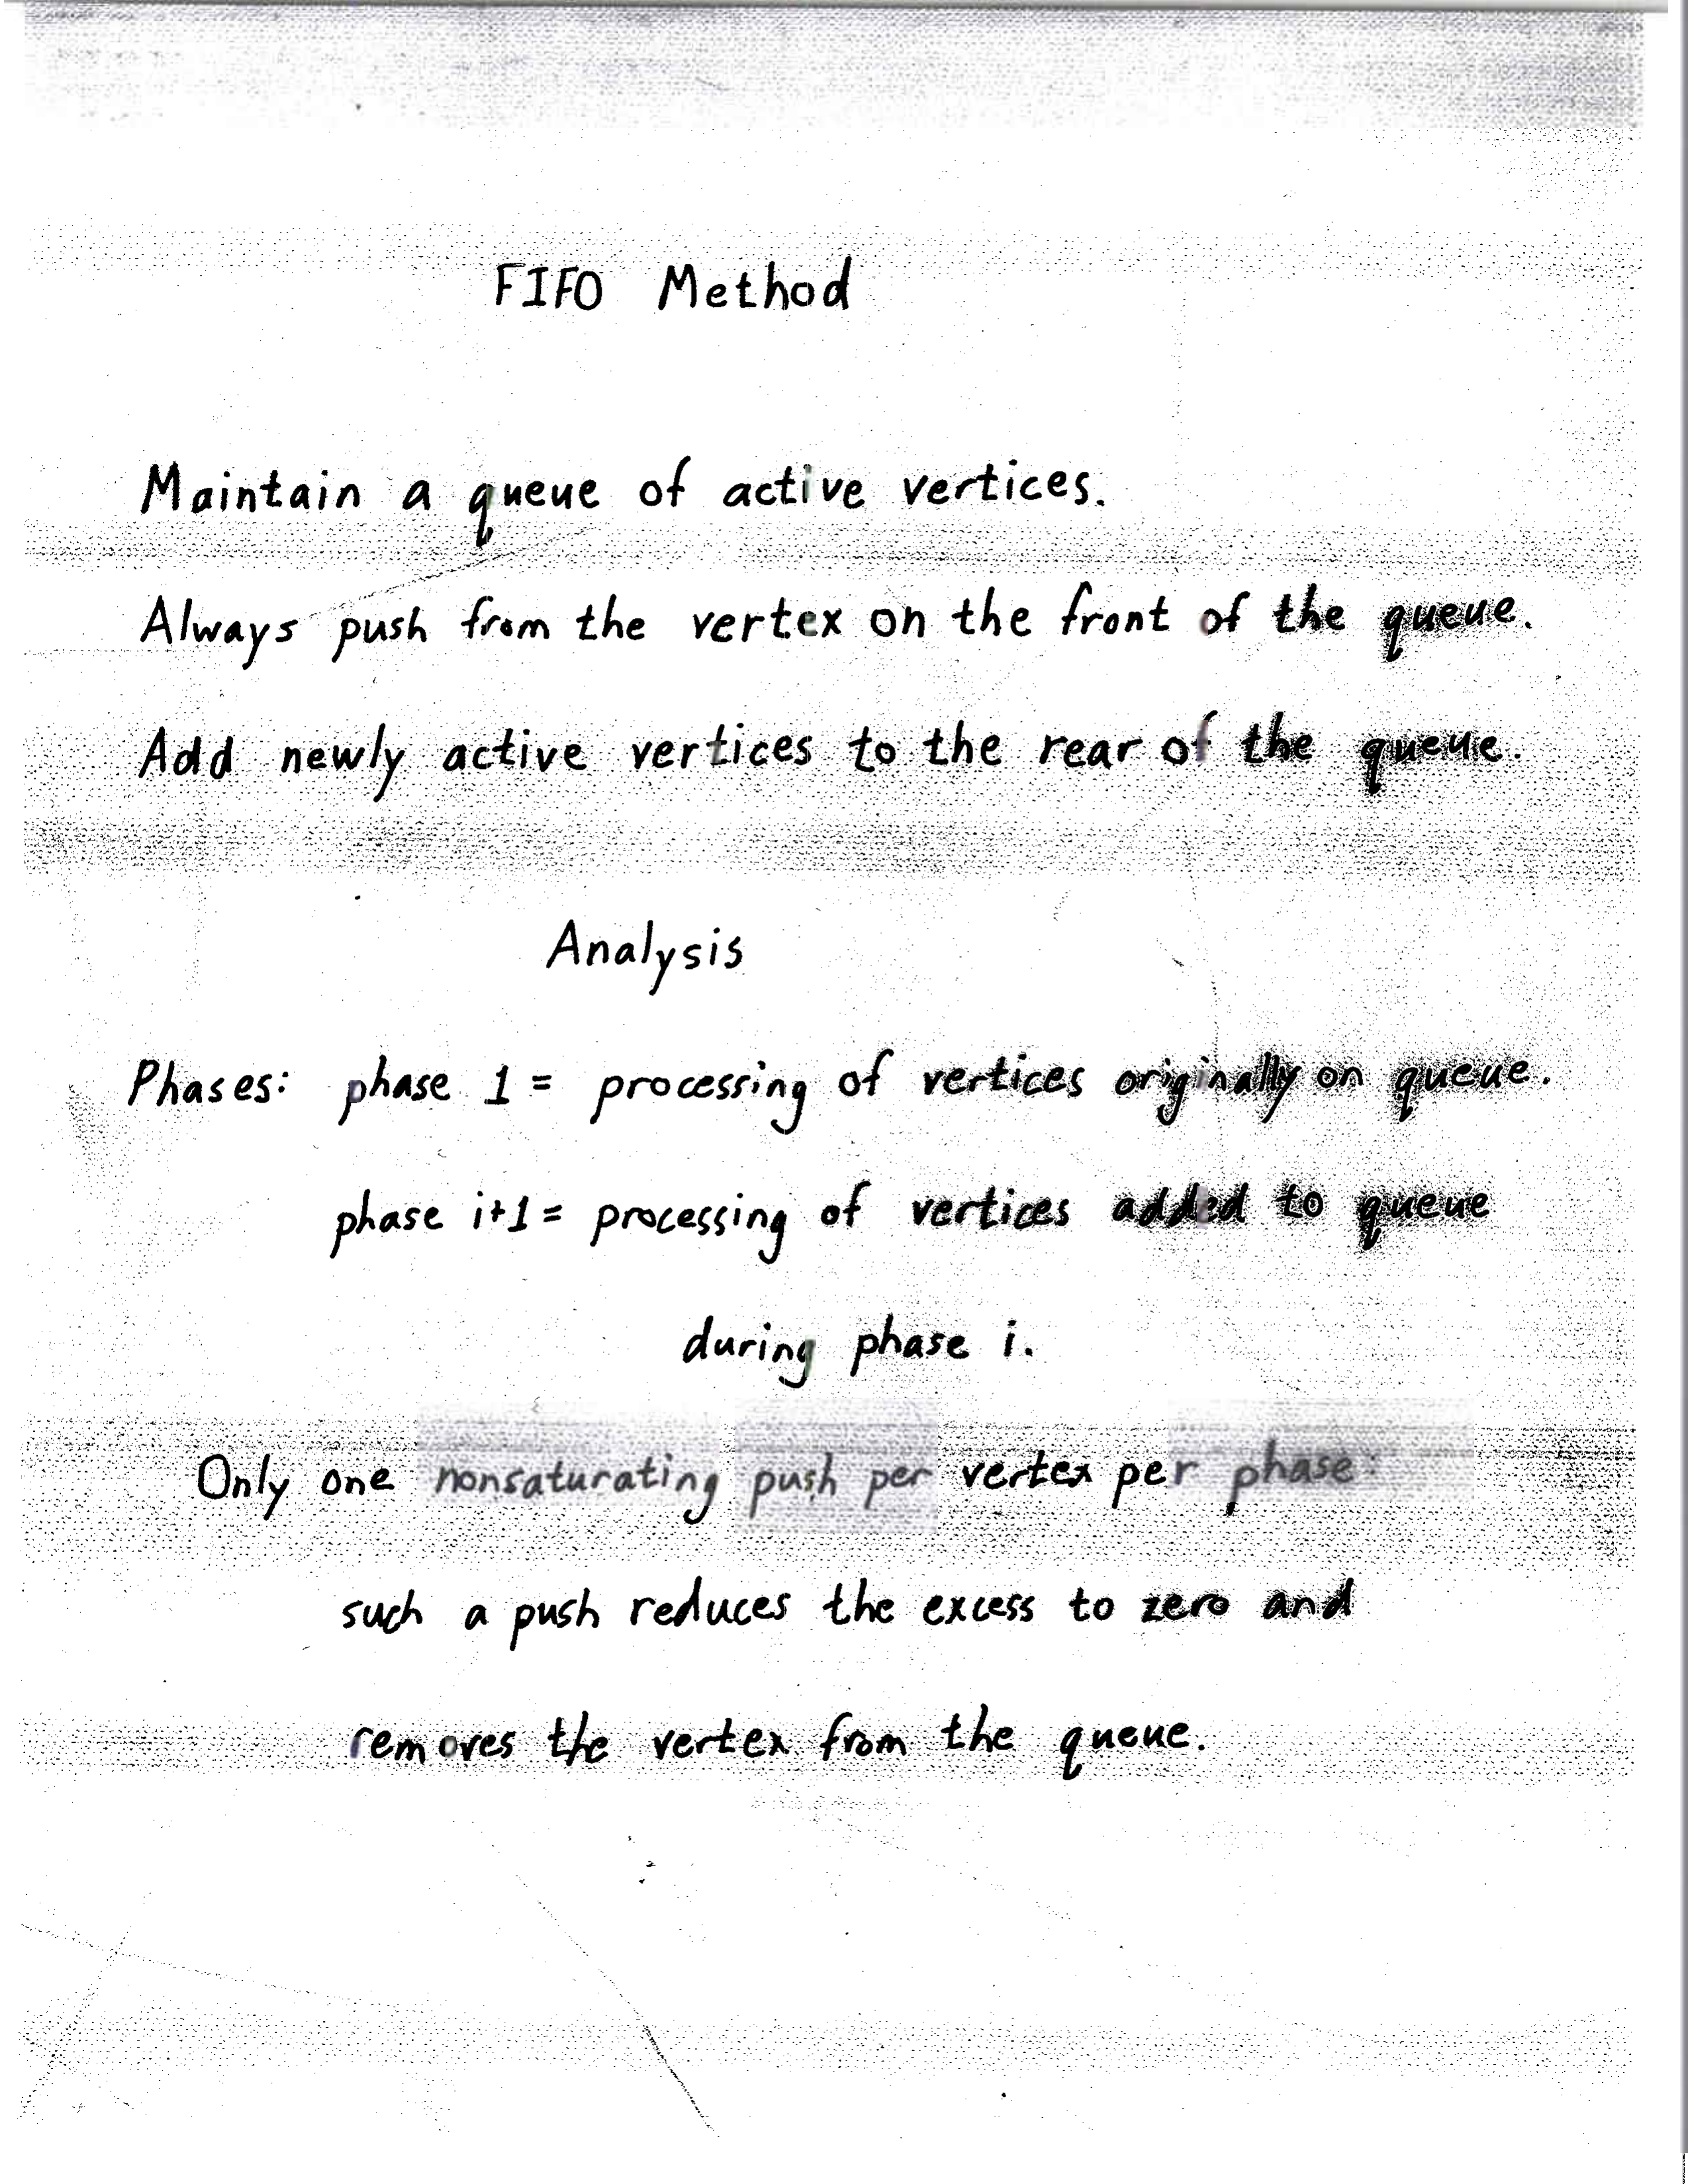 FIFO Method
Maintain a queue of active vertices.
Always push from the vertex on the front of the queue.
Add newly active vertices to the rear of the queue.
Analysis
Phases: phase 1 = processing of vertices originally on queue.
phase i+1 = processing of vertices added to queue
during phase i.
Only one nonsaturating push per vertex per phase:
such a push reduces the excess to zero and
removes the vertex from the queue.